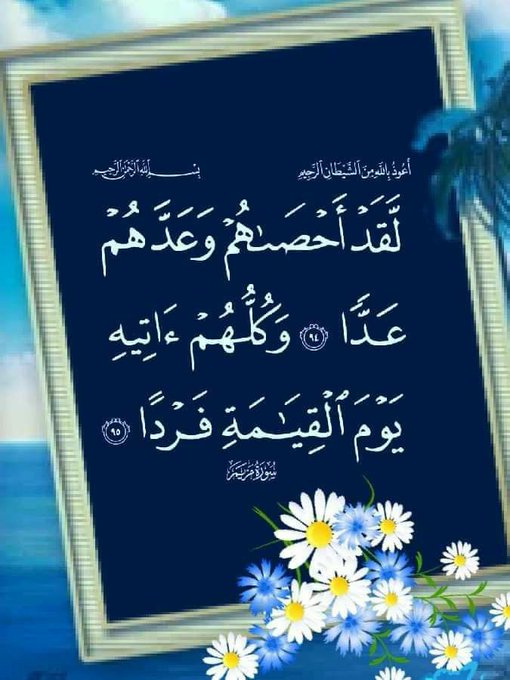 أعوذ بالله من الشيطان الرجيم بسم الله الرحمن الرحيم
لَّقَدۡ أَحۡصَىٰهُمۡ وَعَدَّهُمۡ
عَدّٗا ٩٤ وَكُلُّهُمۡ ءَاتِيهِ
يَوۡمَ ٱلۡقِيَٰمَةِ فَرۡدًا ٩٥
سُورَةُ مَرۡيَمَ